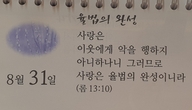 율법의 완성
사랑은
이웃에게 악을 행하지
아니하나니 그러므로
사랑은 율법의 완성이니라
(롬 13:10)
8월 31일